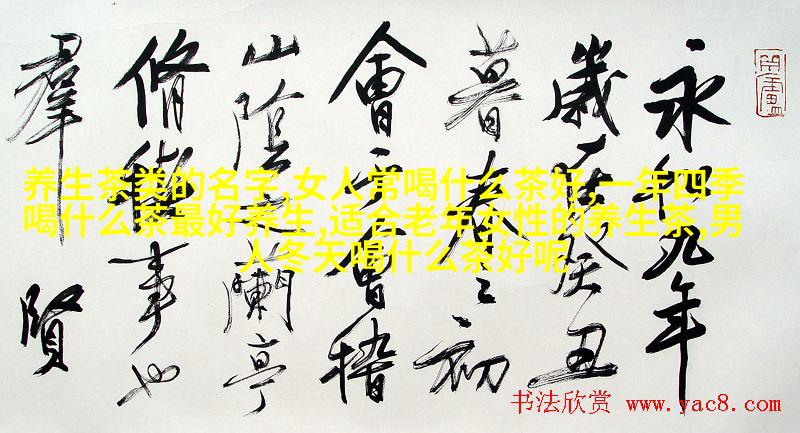 永和九年
歲在癸丑
暮春之初
會于會稽
山陰之蘭亭
脩禊事也
羣賢
养生茶类的名字,女人常喝什么茶好,一年四季
喝什么茶最好养生,适合老年女性的养生茶,男
人冬天喝什么茶好呢
书法欣赏 www.yac8.com